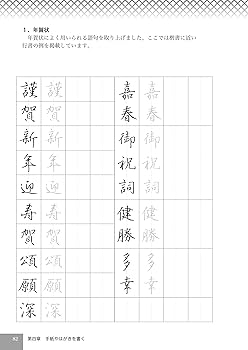 1．年賀状
年賀状によく用いられる語句を取り上げました。ここでは楷書に近い
行書の例を掲載しています。
嘉春御祝詞健勝多幸
嘉春御祝詞健勝多幸
謹賀新年迎寿賀頌願深
謹賀新年迎寿賀頌願深
82 第四章 手紙やはがきを書く